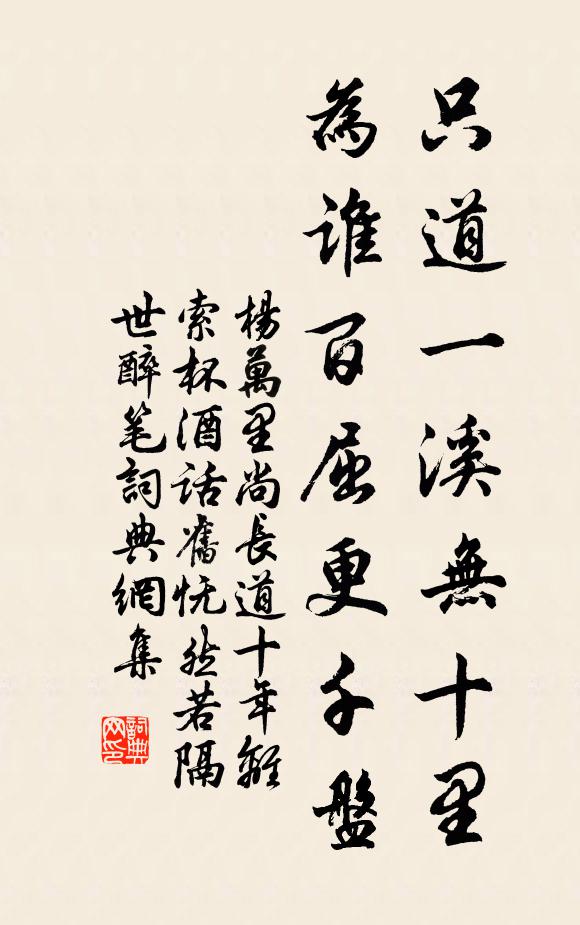 只道一溪無十里
為誰百屈更千盤
楊萬里尚長道十年離
索杯酒話舊恍然若隔
世醉笔詞典網集
詞典网印